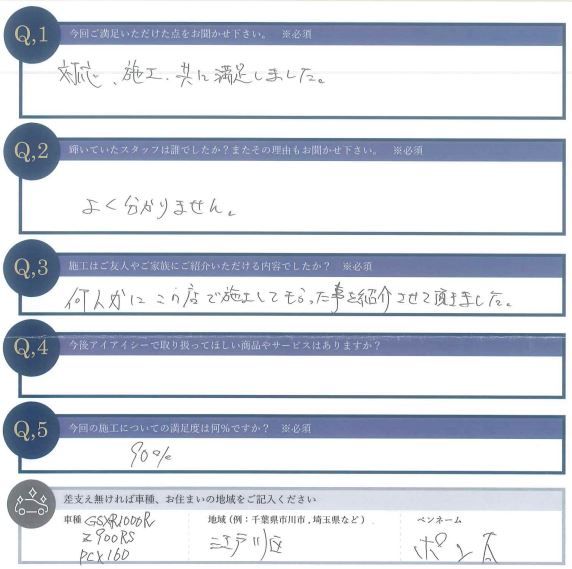 Q,1 今回ご満足いただけた点をお聞かせ下さい。 ※必須
対応、施工、共に満足しました。
Q,2 輝いていたスタッフは誰でしたか？またその理由もお聞かせ下さい。 ※必須
よく分かりません。
Q,3 施工はご友人やご家族にご紹介いただける内容でしたか？ ※必須
何人かにこの店で施工してもらった事を紹介させて頂きました。
Q,4 今後アイアイシーで取り扱ってほしい商品やサービスはありますか？
Q,5 今回の施工についての満足度は何％ですか？ ※必須
90%
差支え無ければ車種、お住まいの地域をご記入ください
車種 GSXR1000R
Z900RS
PCX160
地域(例：千葉県市川市,埼玉県など)
江戸川区
ペンネーム
ポン太